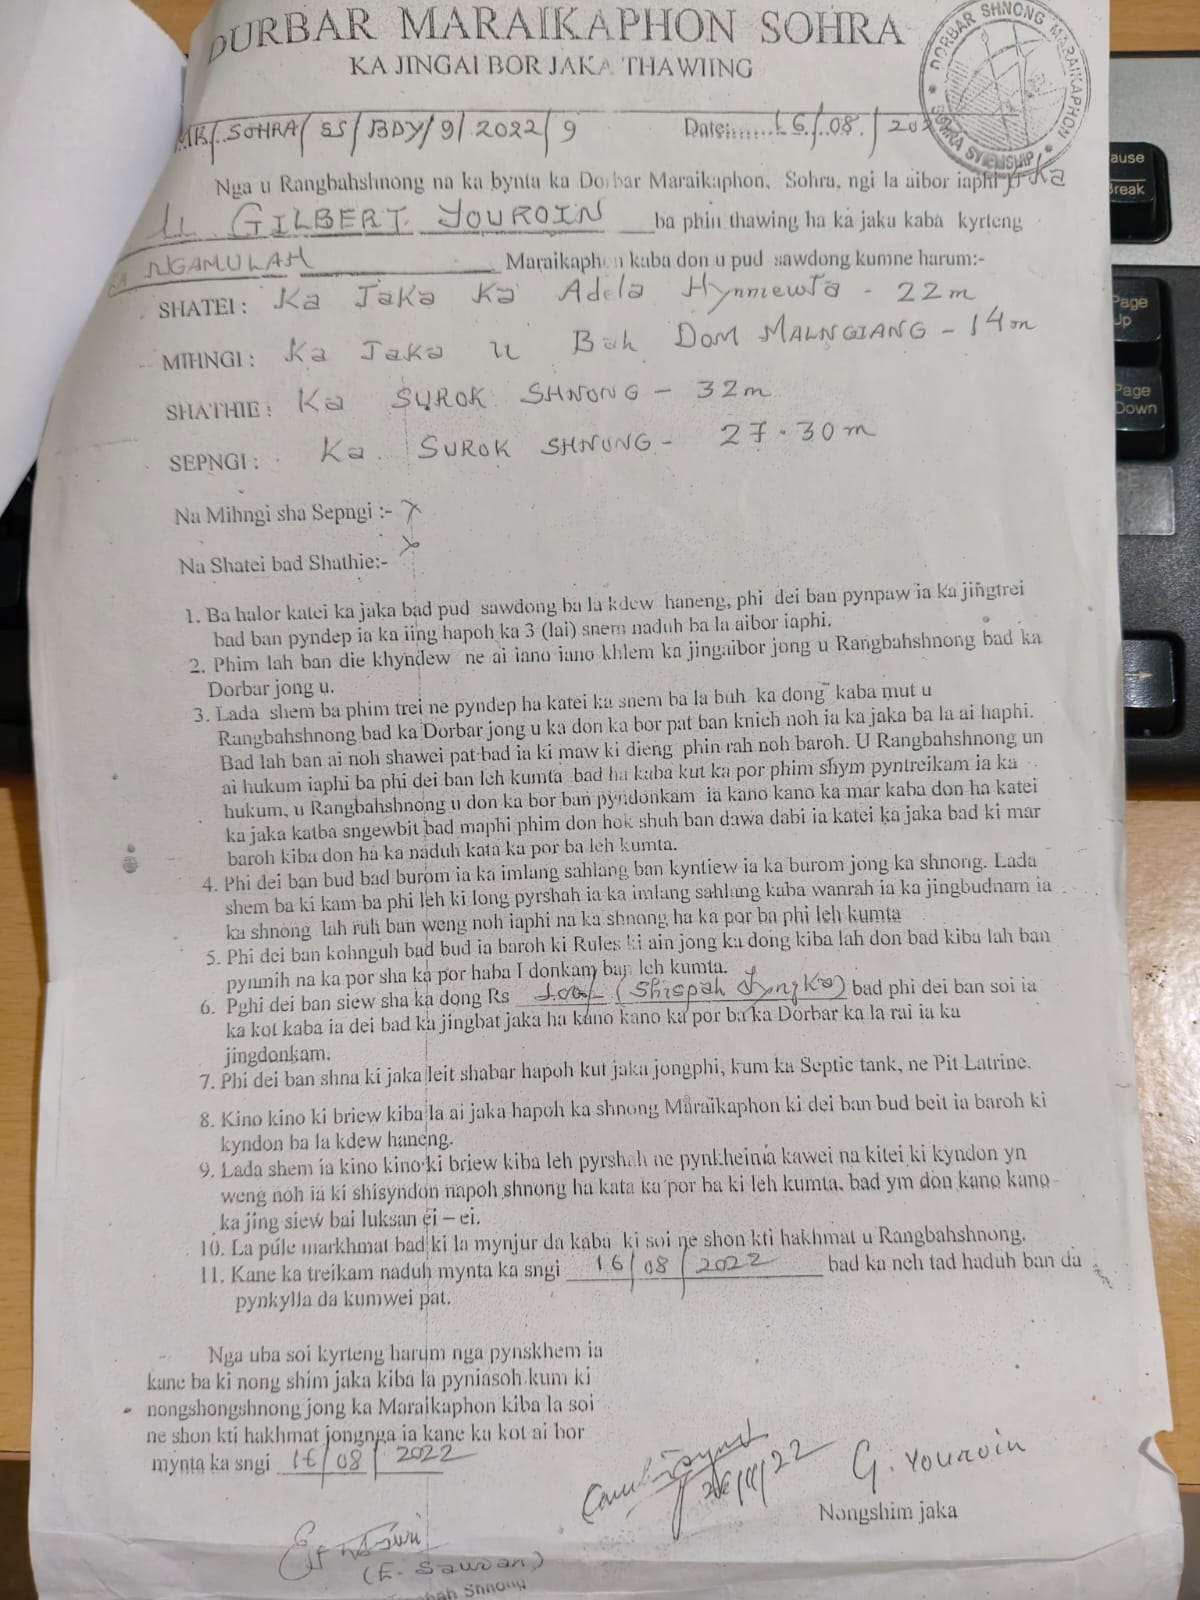 DURBAR MARAIKAPHON SOHRA
KA JINGAI BOR JAKA THAWIING
DORBAR SHNONG MARAIKAPHON
SOHRA SYIEMSHIP
MR/SOHRA/SS/BDY/9/2022/9 Date:......16/.08./202
Nga u Rangbahshnong na ka bynta ka Dorbar Maraikaphon, Sohra, ngi la aibor iaphi u/ka
U GILBERT YOUROIN ba phin thawing ha ka jaka kaba kyrteng
KA NGAMULAH Maraikaphon kaba don u pud sawdong kumne harum:-
SHATEI : Ka Jaka Ka Adela Hynniewta - 22m
MIHNGI : Ka Jaka U Bah DOM MALNGIANG - 14m
SHATHIE : Ka SUROK SHNONG - 32m
SEPNGI : Ka SUROK SHNONG - 27.30m
Na Mihngi sha Sepngi :- X
Na Shatei bad Shathie:- X
1. Ba halor katei ka jaka bad pud sawdong ba la kdew haneng, phi dei ban pynpaw ia ka jingtrei
bad ban pyndep ia ka iing hapoh ka 3 (lai) snem naduh ba la aibor iaphi.
2. Phim lah ban die khyndew ne ai iano iano khlem ka jingaibor jong u Rangbahshnong bad ka
Dorbar jong u.
3. Lada shem ba phim trei ne pyndep ha katei ka snem ba la buh ka dong kaba mut u
Rangbahshnong bad ka Dorbar jong u ka don ka bor pat ban knieh noh ia ka jaka ba la ai haphi.
Bad lah ban ai noh shawei pat bad ia ki maw ki dieng phin rah noh baroh. U Rangbahshnong un
ai hukum iaphi ba phi dei ban leh kumta bad ha kaba kut ka por phim shym pyntreikam ia ka
hukum, u Rangbahshnong u don ka bor ban pyndonkam ia kano kano ka mar kaba don ha katei
ka jaka katba sngewbit bad maphi phim don hok shuh ban dawa dabi ia katei ka jaka bad ki mar
baroh kiba don ha ka naduh kata ka por ba leh kumta.
4. Phi dei ban bud bad burom ia ka imlang sahlang ban kyntiew ia ka burom jong ka shnong. Lada
shem ba ki kam ba phi leh ki long pyrshah ia ka imlang sahlang kaba wanrah ia ka jingbudnam ia
ka shnong lah ruh ban weng noh iaphi na ka shnong ha ka por ba phi leh kumta
5. Phi dei ban kohnguh bad bud ia baroh ki Rules ki ain jong ka dong kiba lah don bad kiba lah ban
pynmih na ka por sha ka por haba I donkam ban leh kumta.
6. Pghi dei ban siew sha ka dong Rs 100/- (Shispah Tyngka) bad phi dei ban soi ia
ka kot kaba ia dei bad ka jingbat jaka ha kano kano ka por ba ka Dorbar ka la rai ia ka
jingdonkam.
7. Phi dei ban shna ki jaka leit shabar hapoh kut jaka jongphi, kum ka Septic tank, ne Pit Latrine.
8. Kino kino ki briew kiba la ai jaka hapoh ka shnong Maraikaphon ki dei ban bud beit ia baroh ki
kyndon ba la kdew haneng.
9. Lada shem ia kino kino ki briew kiba leh pyrshah ne pynkheinia kawei na kitei ki kyndon yn
weng noh ia ki shisyndon napoh shnong ha kata ka por ba ki leh kumta, bad ym don kano kano
ka jing siew bai luksan ei – ei.
10. La pule markhmat bad ki la mynjur da kaba ki soi ne shon kti hakhmat u Rangbahshnong.
11. Kane ka treikam naduh mynta ka sngi 16/08/2022 bad ka neh tad haduh ban da
pynkylla da kumwei pat.
Nga uba soi kyrteng harum nga pynskhem ia
kane ba ki nong shim jaka kiba la pyniasoh kum ki
nongshongshnong jong ka Maraikaphon kiba la soi
ne shon kti hakhmat jongnga ia kane ka kot ai bor
mynta ka sngi 16/08/2022
G. Youroin
Nongshim jaka
(E. Sawian)
Shnong